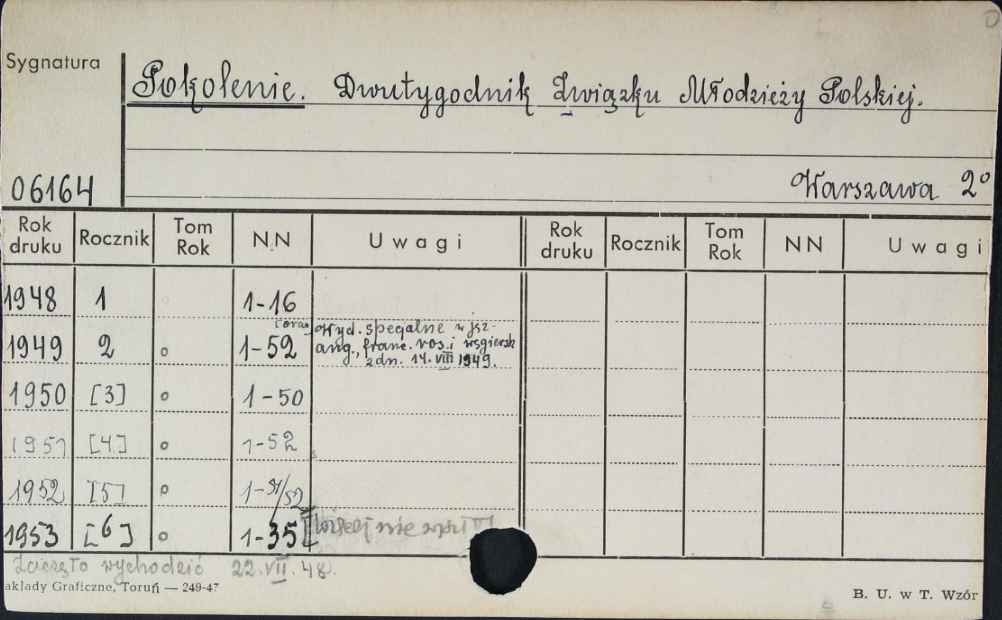 Sygnatura
Pokolenie. Dwutygodnik Związku Młodzieży Polskiej.
06164
Warszawa 2°
Rok druku Rocznik Tom Rok NN Uwagi Rok druku Rocznik Tom Rok NN Uwagi
1948 1 1-16
1949 2 o 1-52 [oraz Wyd. specjalne w jęz.
ang., franc. ros. i węgiersk
z dn. 14.VIII 1949.
1950 [3] o 1-50
1951 [4] o 1-52
1952 [5] o 1-51/52
1953 [6] o 1-35 [Więcej nie
Zaczęło wychodzić 22.VII.48.
akłady Graficzne, Toruń — 249-47
B. U. w T. Wzór